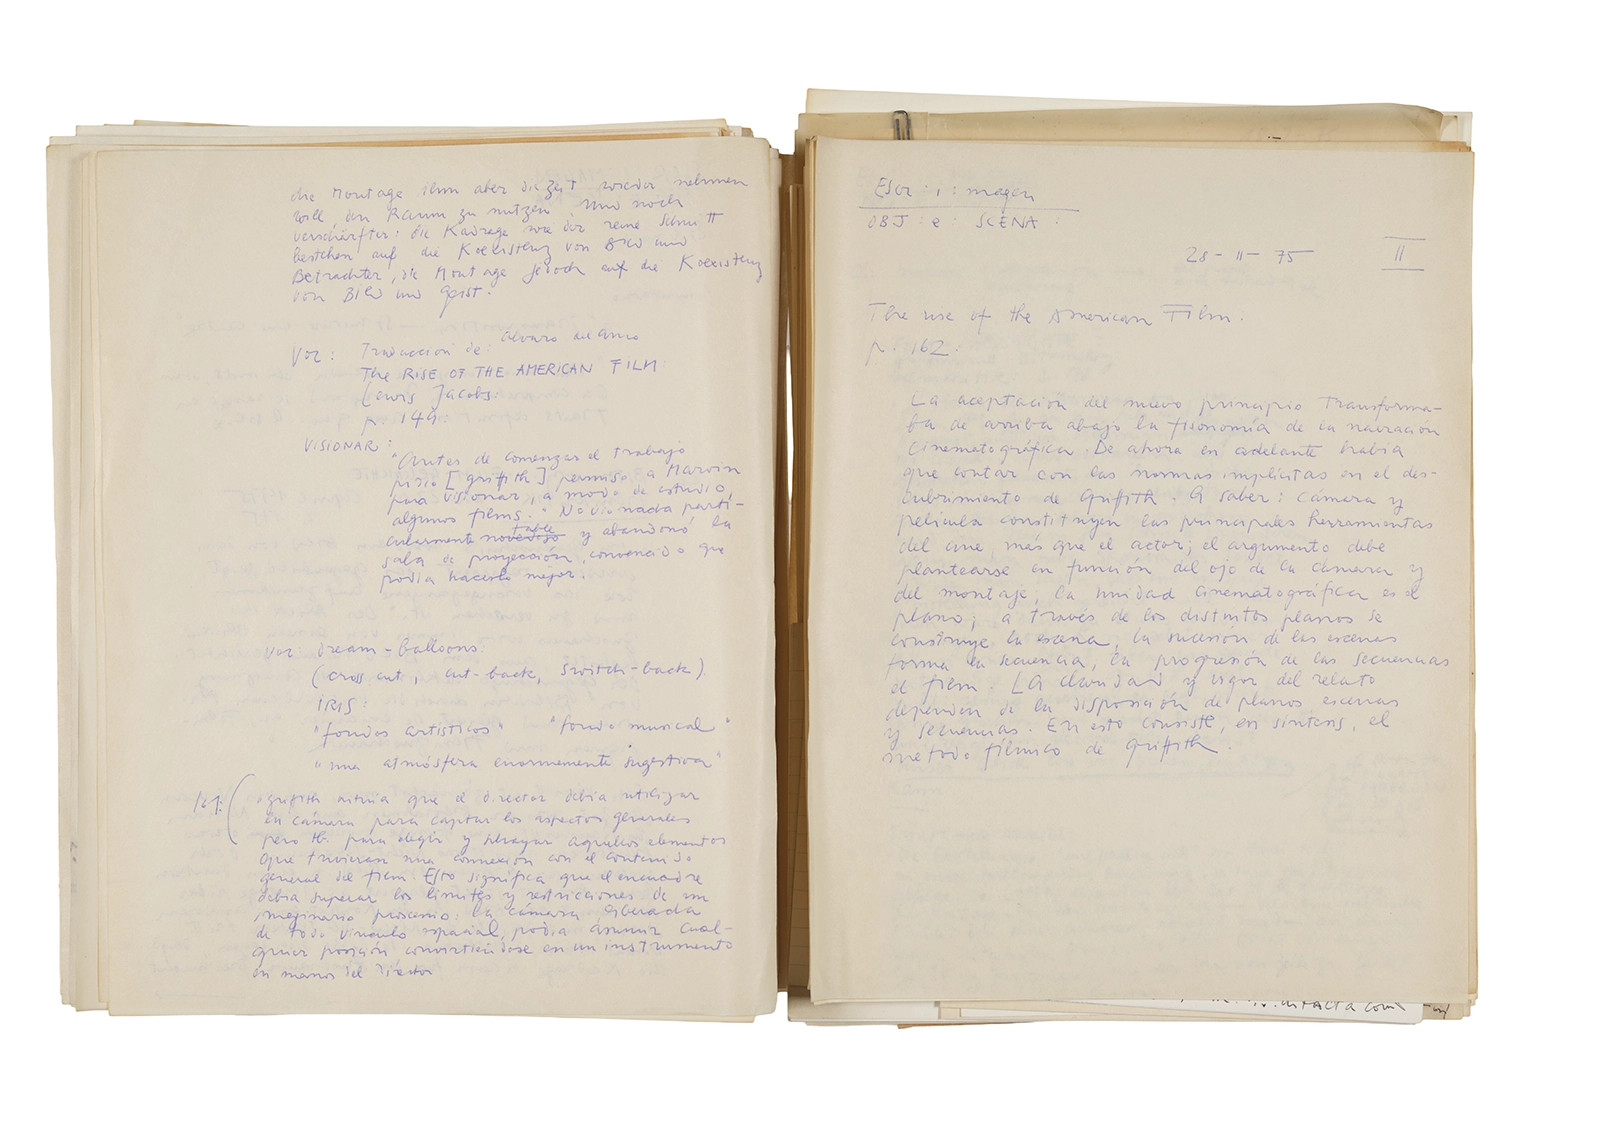 die Montage ihm aber die Zeit wieder nehmen
will den Raum zu nutzen. Und noch
verschärfter: die Kadrage wie der reine Schnitt
bestehen auf die Koexistenz von Bild und
Betrachter, die Montage jedoch auf die Koexistenz
von Bild und Geist.
Vor: Traducción de: Alvaro del Amo
The RISE OF THE AMERICAN FILM
Lewis Jacobs.
p. 149.
VISIONAR:
"Antes de comenzar el trabajo
pidió [Griffith] permiso a Marvin
para visionar, a modo de estudio,
algunos films." No vio nada parti-
cularmente notable y abandonó la
sala de proyección, convencido que
podía hacerlo mejor.
Vor: dream-balloons.
(cross cut, cut-back, switch-back).
IRIS:
"fondos artísticos" "fondo musical"
"una atmósfera enormemente sugestiva"
Griffith intuía que el director debía utilizar
la cámara para captar los aspectos generales
pero tb. para elegir y subrayar aquellos elementos
que tuvieran una connexión con el contenido
general del film. Esto significa que el encuadre
debía superar los límites y restricciones de un
imaginario proscenio: la cámara liberada
de todo vínculo espacial, podía asumir cual-
quier posición, convirtiéndose en un instrumento
en manos del director
Escr : i : magen
OBJ : e : SCENA :
28-II-75 II
The rise of the American Film.
p. 162.
La aceptación del nuevo principio transforma-
ba de arriba abajo la fisonomía de la narración
cinematográfica. De ahora en adelante habia
que contar con las normas implícitas en el des-
cubrimiento de Griffith. A saber: cámara y
película constituyen las principales herramientas
del cine, más que el actor; el argumento debe
plantearse en función del ojo de la cámara y
del montaje; la unidad cinematográfica es el
plano; a través de los distintos planos se
construye la escena, la sucesión de las escenas
forma la secuencia, la progresión de las secuencias
el film. La claridad y vigor del relato
dependen de la disposición de planos escenas
y secuencias. En esto consiste, en síntesis, el
metodo fílmico de Griffith.